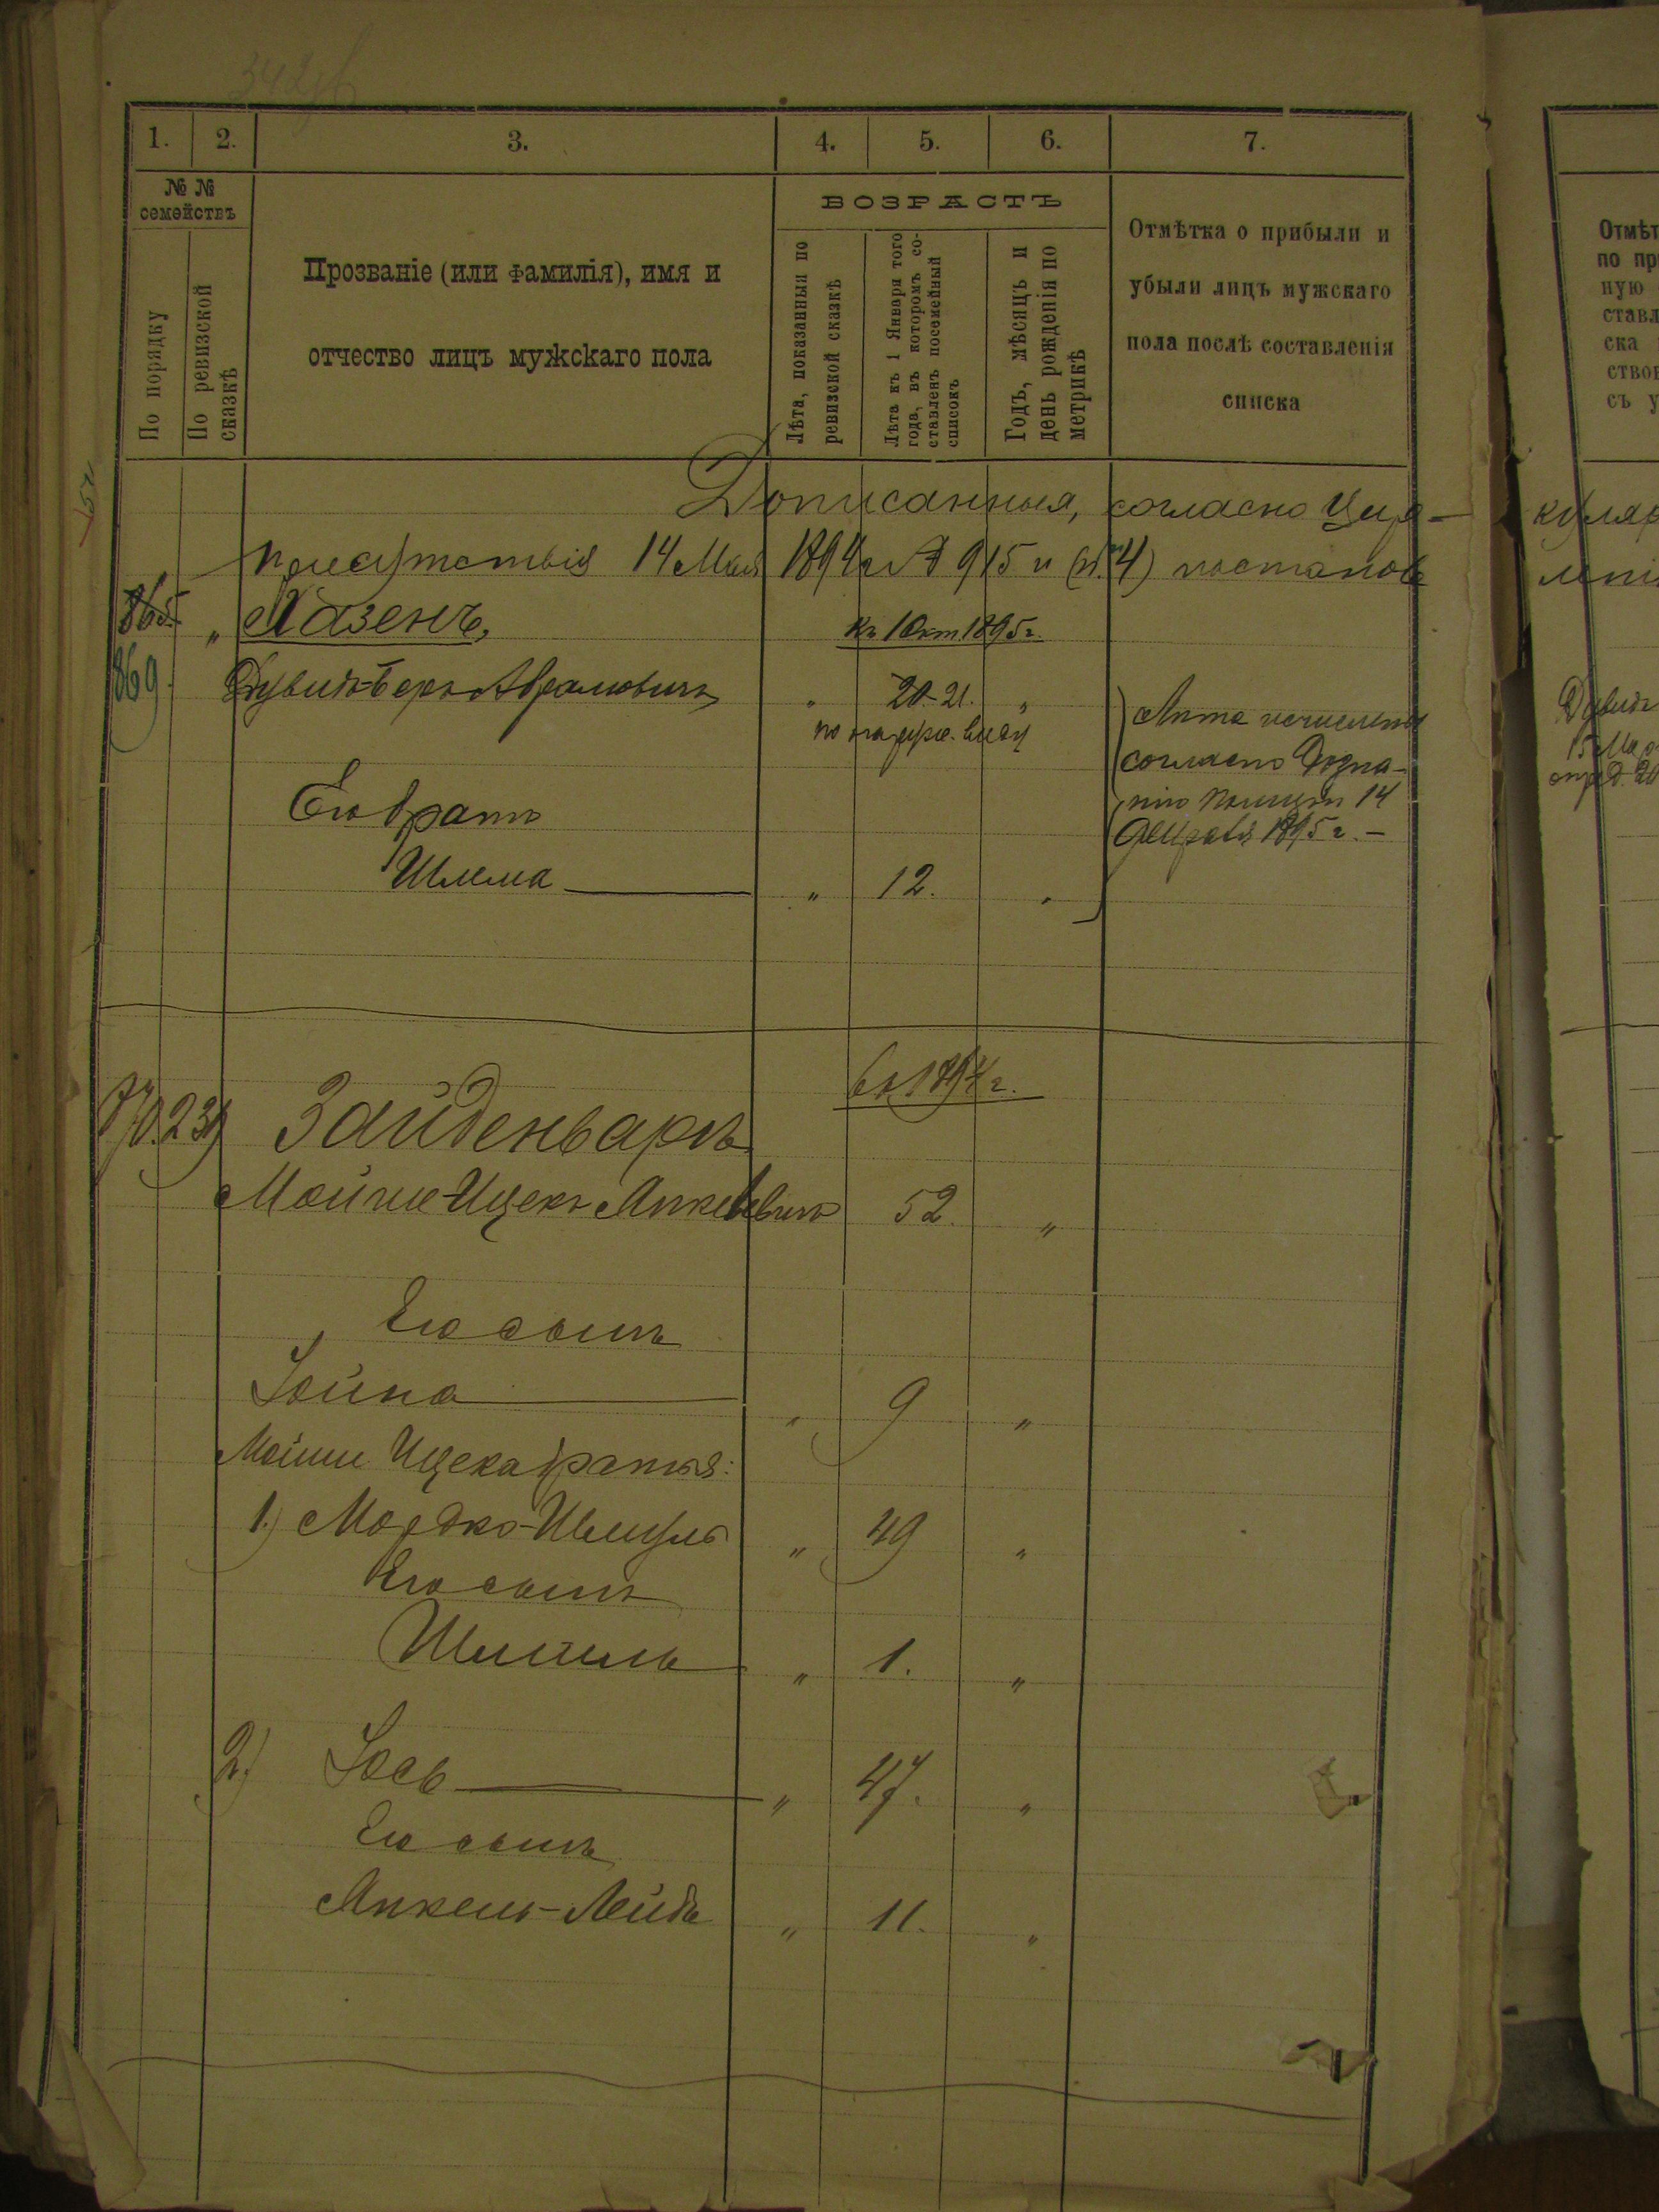 1.
2.
3.
4.
5.
6.
7.
№ №
семействъ
По порядку
По ревизской
сказкѣ
Прозваніе (или фамилія), имя и
отчество лицъ мужскаго пола
ВОЗРАСТЪ
Лѣта, показанныя по
ревизской сказкѣ
Лѣта къ 1 Января того
года, въ которомъ со-
ставленъ посемейный
списокъ
Годъ, мѣсяцъ и
день рожденія по
метрикѣ
Отмѣтка о прибыли и
убыли лицъ мужскаго
пола послѣ составленія
списка
Дописанныя, согласно Цир-
14 Мая 1894 г № 915 и постанов
865
869
Хазенъ,
къ 1 Окт. 1895 г.
Дувидъ-Беръ Аврамовичъ
" 20-21. "
по наруж. виду
Его братъ
Шлема " 12. "
Лѣта исчислены
согласно Дозна-
нію Полиціи 14
Февраля 1895 г. –
въ 1894 г.
Зайденваръ
Мойше-Ицекъ Янкелевичъ 52. "
Его сынъ
Іойна " 9 "
Мойши Ицека братья:
1.) Мордко-Шмуль " 49 "
Его сынъ
" 1. "
2.) Іось " 47. "
Его сынъ
Янкель-Лейбъ " 11. "
Отмѣт
по пр
ную
ставл
ска
ство
съ у
Дувидъ